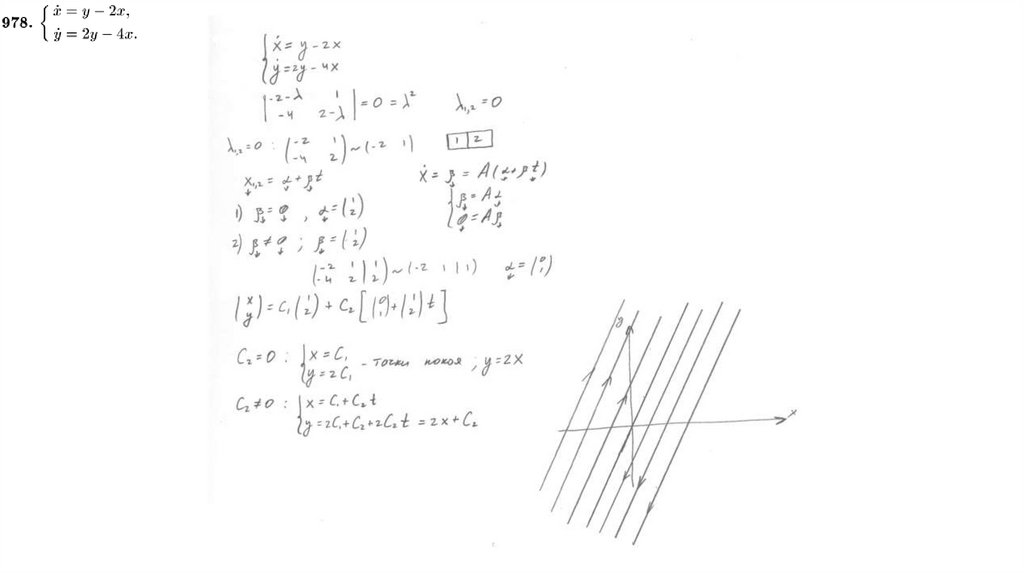 978. { ẋ = y − 2x,
ẏ = 2y − 4x.
{ ẋ = y − 2x
ẏ = 2y − 4x
| −2−λ 1 |
| −4 2−λ | = 0 = λ² λ₁,₂ = 0
λ₁,₂ = 0 : ( −2 1 ; −4 2 ) ~ ( −2 1 ) | 1 | 2 |
x₁,₂ = α + βt ẋ = β = A(α + βt)
1) β = 0 , α = ( 1 ; 2 ) { β = Aα
0 = Aβ
2) β ≠ 0 ; β = ( 1 ; 2 )
( −2 1 | 1 ; −4 2 | 2 ) ~ ( −2 1 | 1 ) α = ( 0 ; 1 )
( x ; y ) = C₁ ( 1 ; 2 ) + C₂ [ ( 0 ; 1 ) + ( 1 ; 2 ) t ]
C₂ = 0 : { x = C₁
y = 2C₁ - точки покоя ; y = 2x
C₂ ≠ 0 : { x = C₁ + C₂t
y = 2C₁ + C₂ + 2C₂t = 2x + C₂
y
x